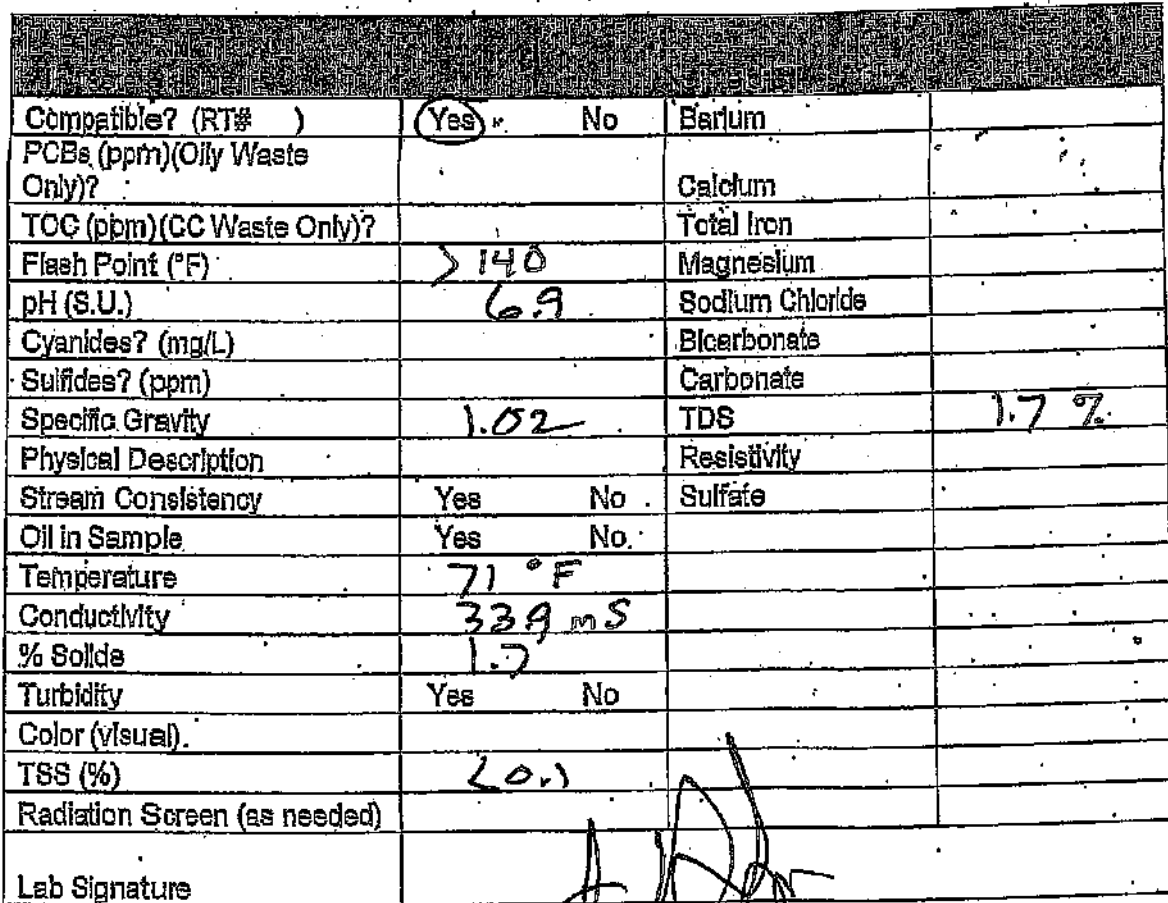 Compatible? (RT# ) Yes No Barium
PCBs (ppm)(Oily Waste
Only)? Calcium
TOC (ppm)(CC Waste Only)? Total Iron
Flash Point (°F) > 140 Magnesium
pH (S.U.) 6.9 Sodium Chloride
Cyanides? (mg/L) Bicarbonate
Sulfides? (ppm) Carbonate
Specific Gravity 1.02 TDS 1.7 %
Physical Description Resistivity
Stream Consistency Yes No Sulfate
Oil in Sample Yes No
Temperature 71 °F
Conductivity mS
% Solids 1.7
Turbidity Yes No
Color (visual)
TSS (%) <0.1
Radiation Screen (as needed)
Lab Signature